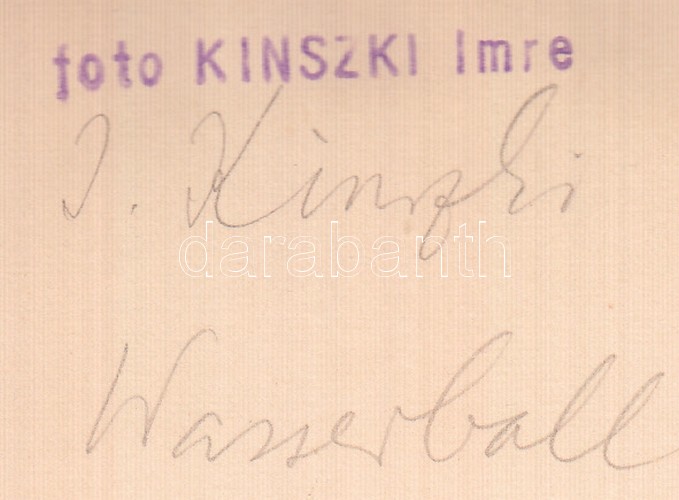 foto KINSZKI Imre
I. Kinszki
darabanth
Wasserball